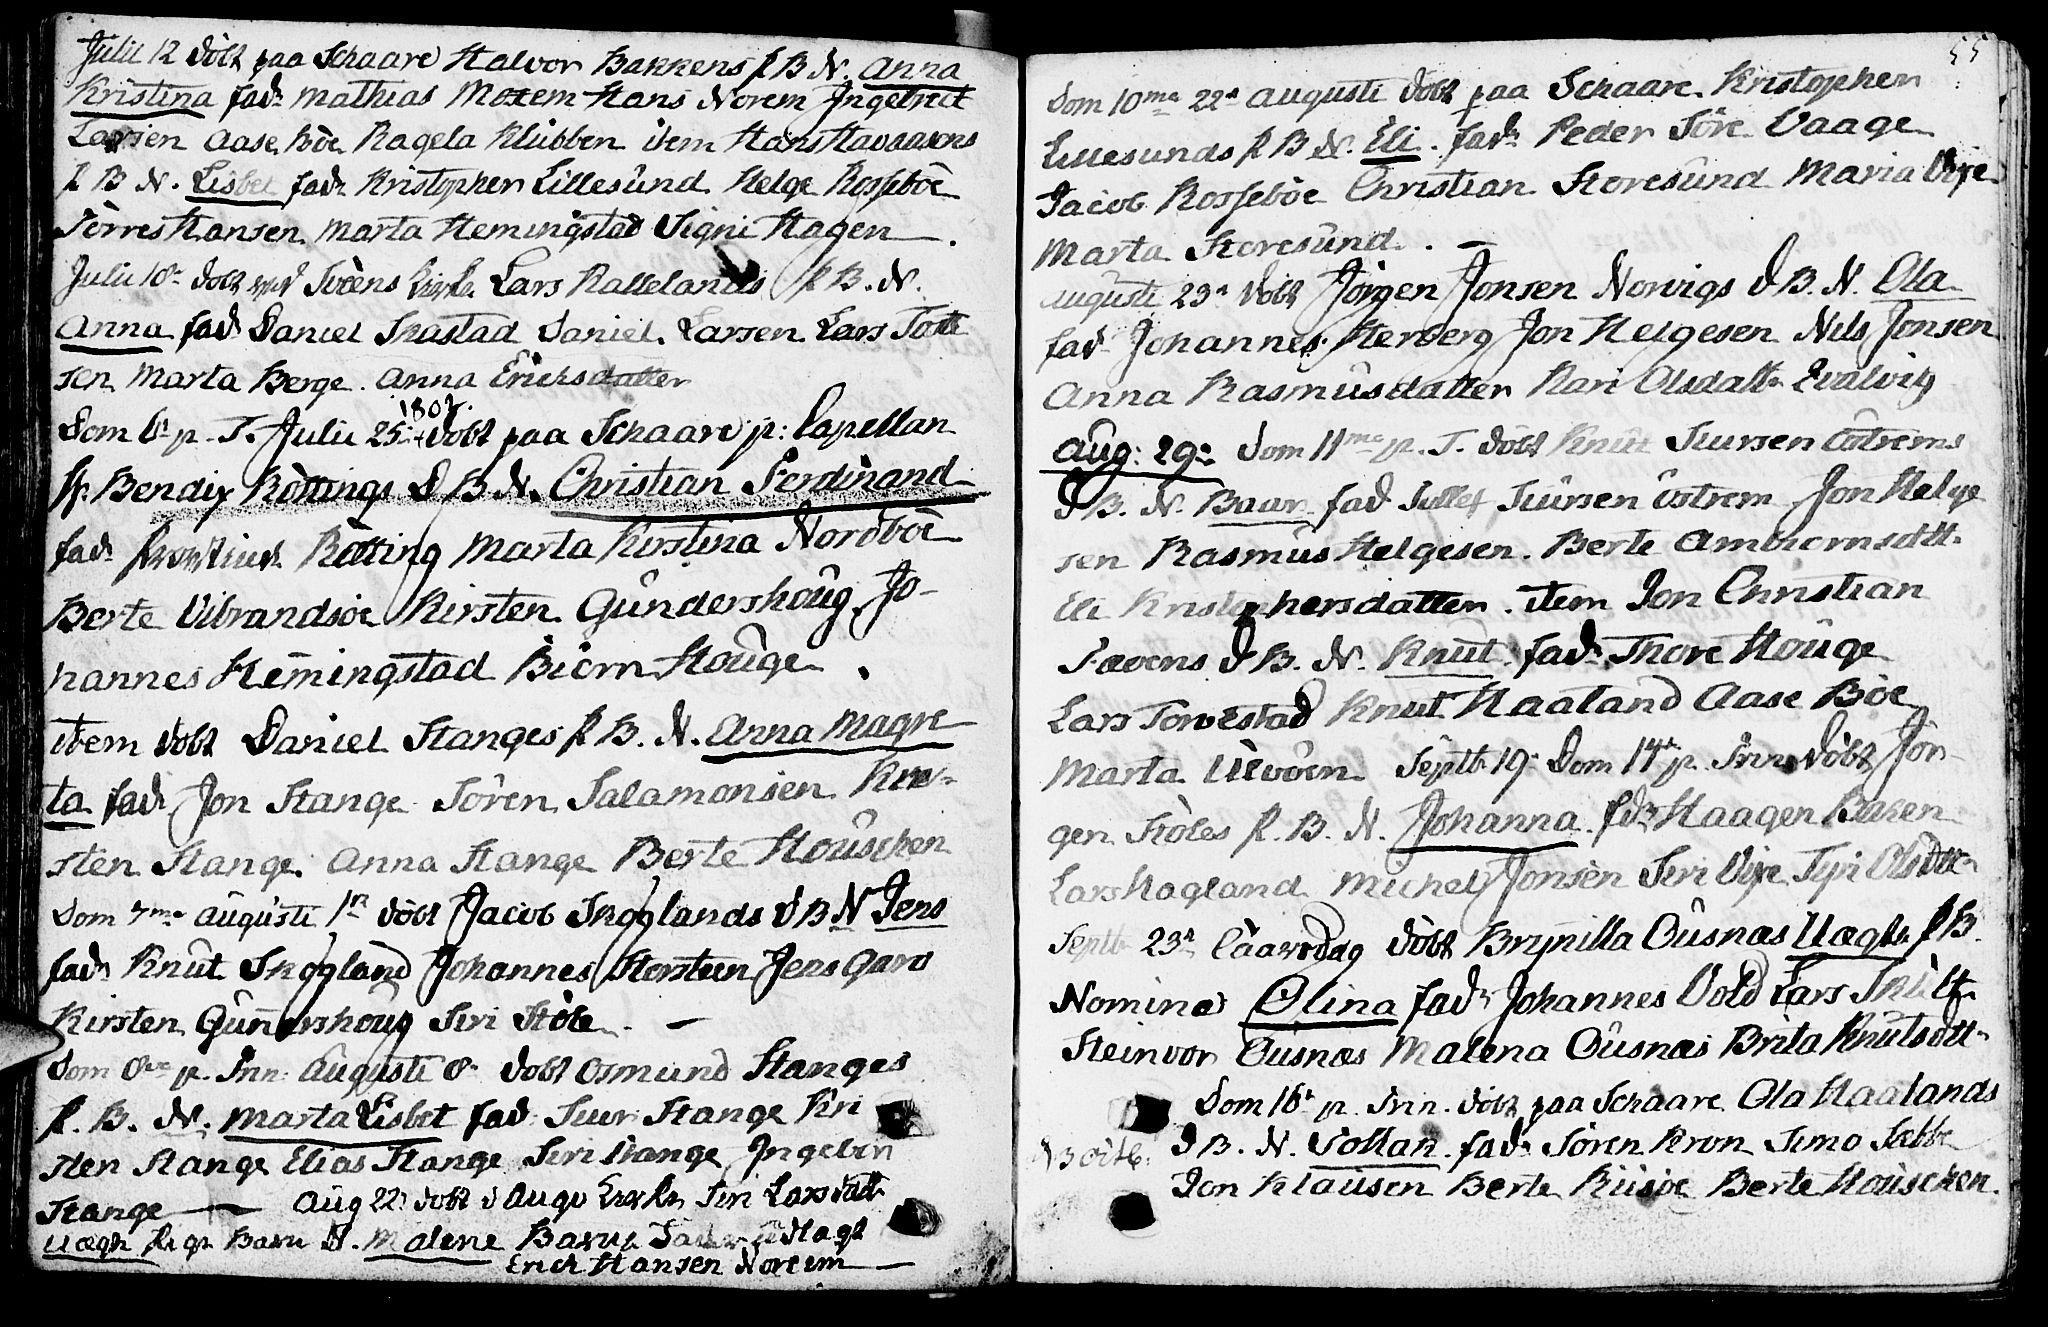 Julii 12 döbt paa Schaare Halvor Bakkens p B N. Anna
Kristina fad: Mathias Moxem Hans Norem Ingebret
Larsen Aase Böe Ragela Klübben item Hans Havaasens
p B N. Lisbet fad: Kristopher Lillesünd Helge Rosseböe
Törres Hansen Marta Hemingstad Signi Hagen
Julii 18 döbt ved Svens Kirke Lars Rallelands p B. N.
Anna fad Daniel Skastad Daniel Larsen Lars Toste
sen Marta Berge. Anna Ericksdatter
1802.
Dom 6t p. T. Julii 25: döbt paa Schaare p: Capellan
Hr. Bendix Röttings D B N. Christian Ferdinand
fad: Rötting Marta Kirstina Nordböe
Berte Vibrandsöe Kirsten Gündershoüg Jo-
hannes Hemingstad Biörn Hoüge
item döbt Daniel Stanges p B. N. Anna Magre
ta fad: Jon Stange Sören Salamonsen Kri-
sten Stange. Anna Stange Berte Hoüscken
Dom 7me Augusti 1n döbt Jacob Skoglands D B N Jens
fad: Knüt Skogland Johannes Storsteen Jens Gard
Kirsten Gündershoüg Siri Stöle.
Dom 8ve p. Trin: Augusti 8 döbt Osmund Stanges
p. B. N. Marta Lisbet fad. Siur Stange Kri
sten Stange Elias Stange Siri Stange Ingebor
Stange Aüg 22 döbt i Augv Kirke Siri Larsdatt
uægt Barn N. Malene Hagt
Erick Hansen Noreim
55
Dom 10me 22d Augusti döbt paa Schaare Kristopher
Lillesunds p B N. Eli. fad: Peder Töre Vaage
Jacob Rosseböe Christian Storesünd Maria Vije
Marta Storesünd.
Augusti 23d döbt Jörgen Jonsen Norvigs D B. N. Ola
fad: Johannes Herberg Jon Helgesen Nils Jonsen
Anna Rasmüsdatter Kari Olsdatt: Evalvig
Aug: 29: Dom 11me p. T. döbt Knüt Siursen Östrems
D B. N. Baar fad Sillef Siürsen Östrem Jon Helge
sen Rasmüs Helgesen. Berte Ambiörnsdtt:
Eli Kristophersdatter. item Jon Christian
Sævens D B. N. Knüt. fad: Thore Hoüge
Lars Torvestad Knut Haaland Aase Böe
Marta Uevöen Septb: 19: Dom 14d p. Trin döbt Jör
gen Stöles p. B. N. Johanna. fad: Haagen Bassen
Lars Hagland Michel Jonsen Siri Vije Siri Olsdtt:
Septb 23d Löaverdag döbt Brynilla Oüsnæs Uægte p B.
Nomine Olina fad: Johannes Vold Lars Skült
Steinvor Oüsnæs Malena Oüsnæs Brita Knütsdtt:
Dom 16d p. Trin. döbt paa Schaare Ola Haalands
D B. N. Tollak. fad: Sören Kron Simo Sæbbe
Jon Klaüsen Berte Risöe Berte Hoüscken.